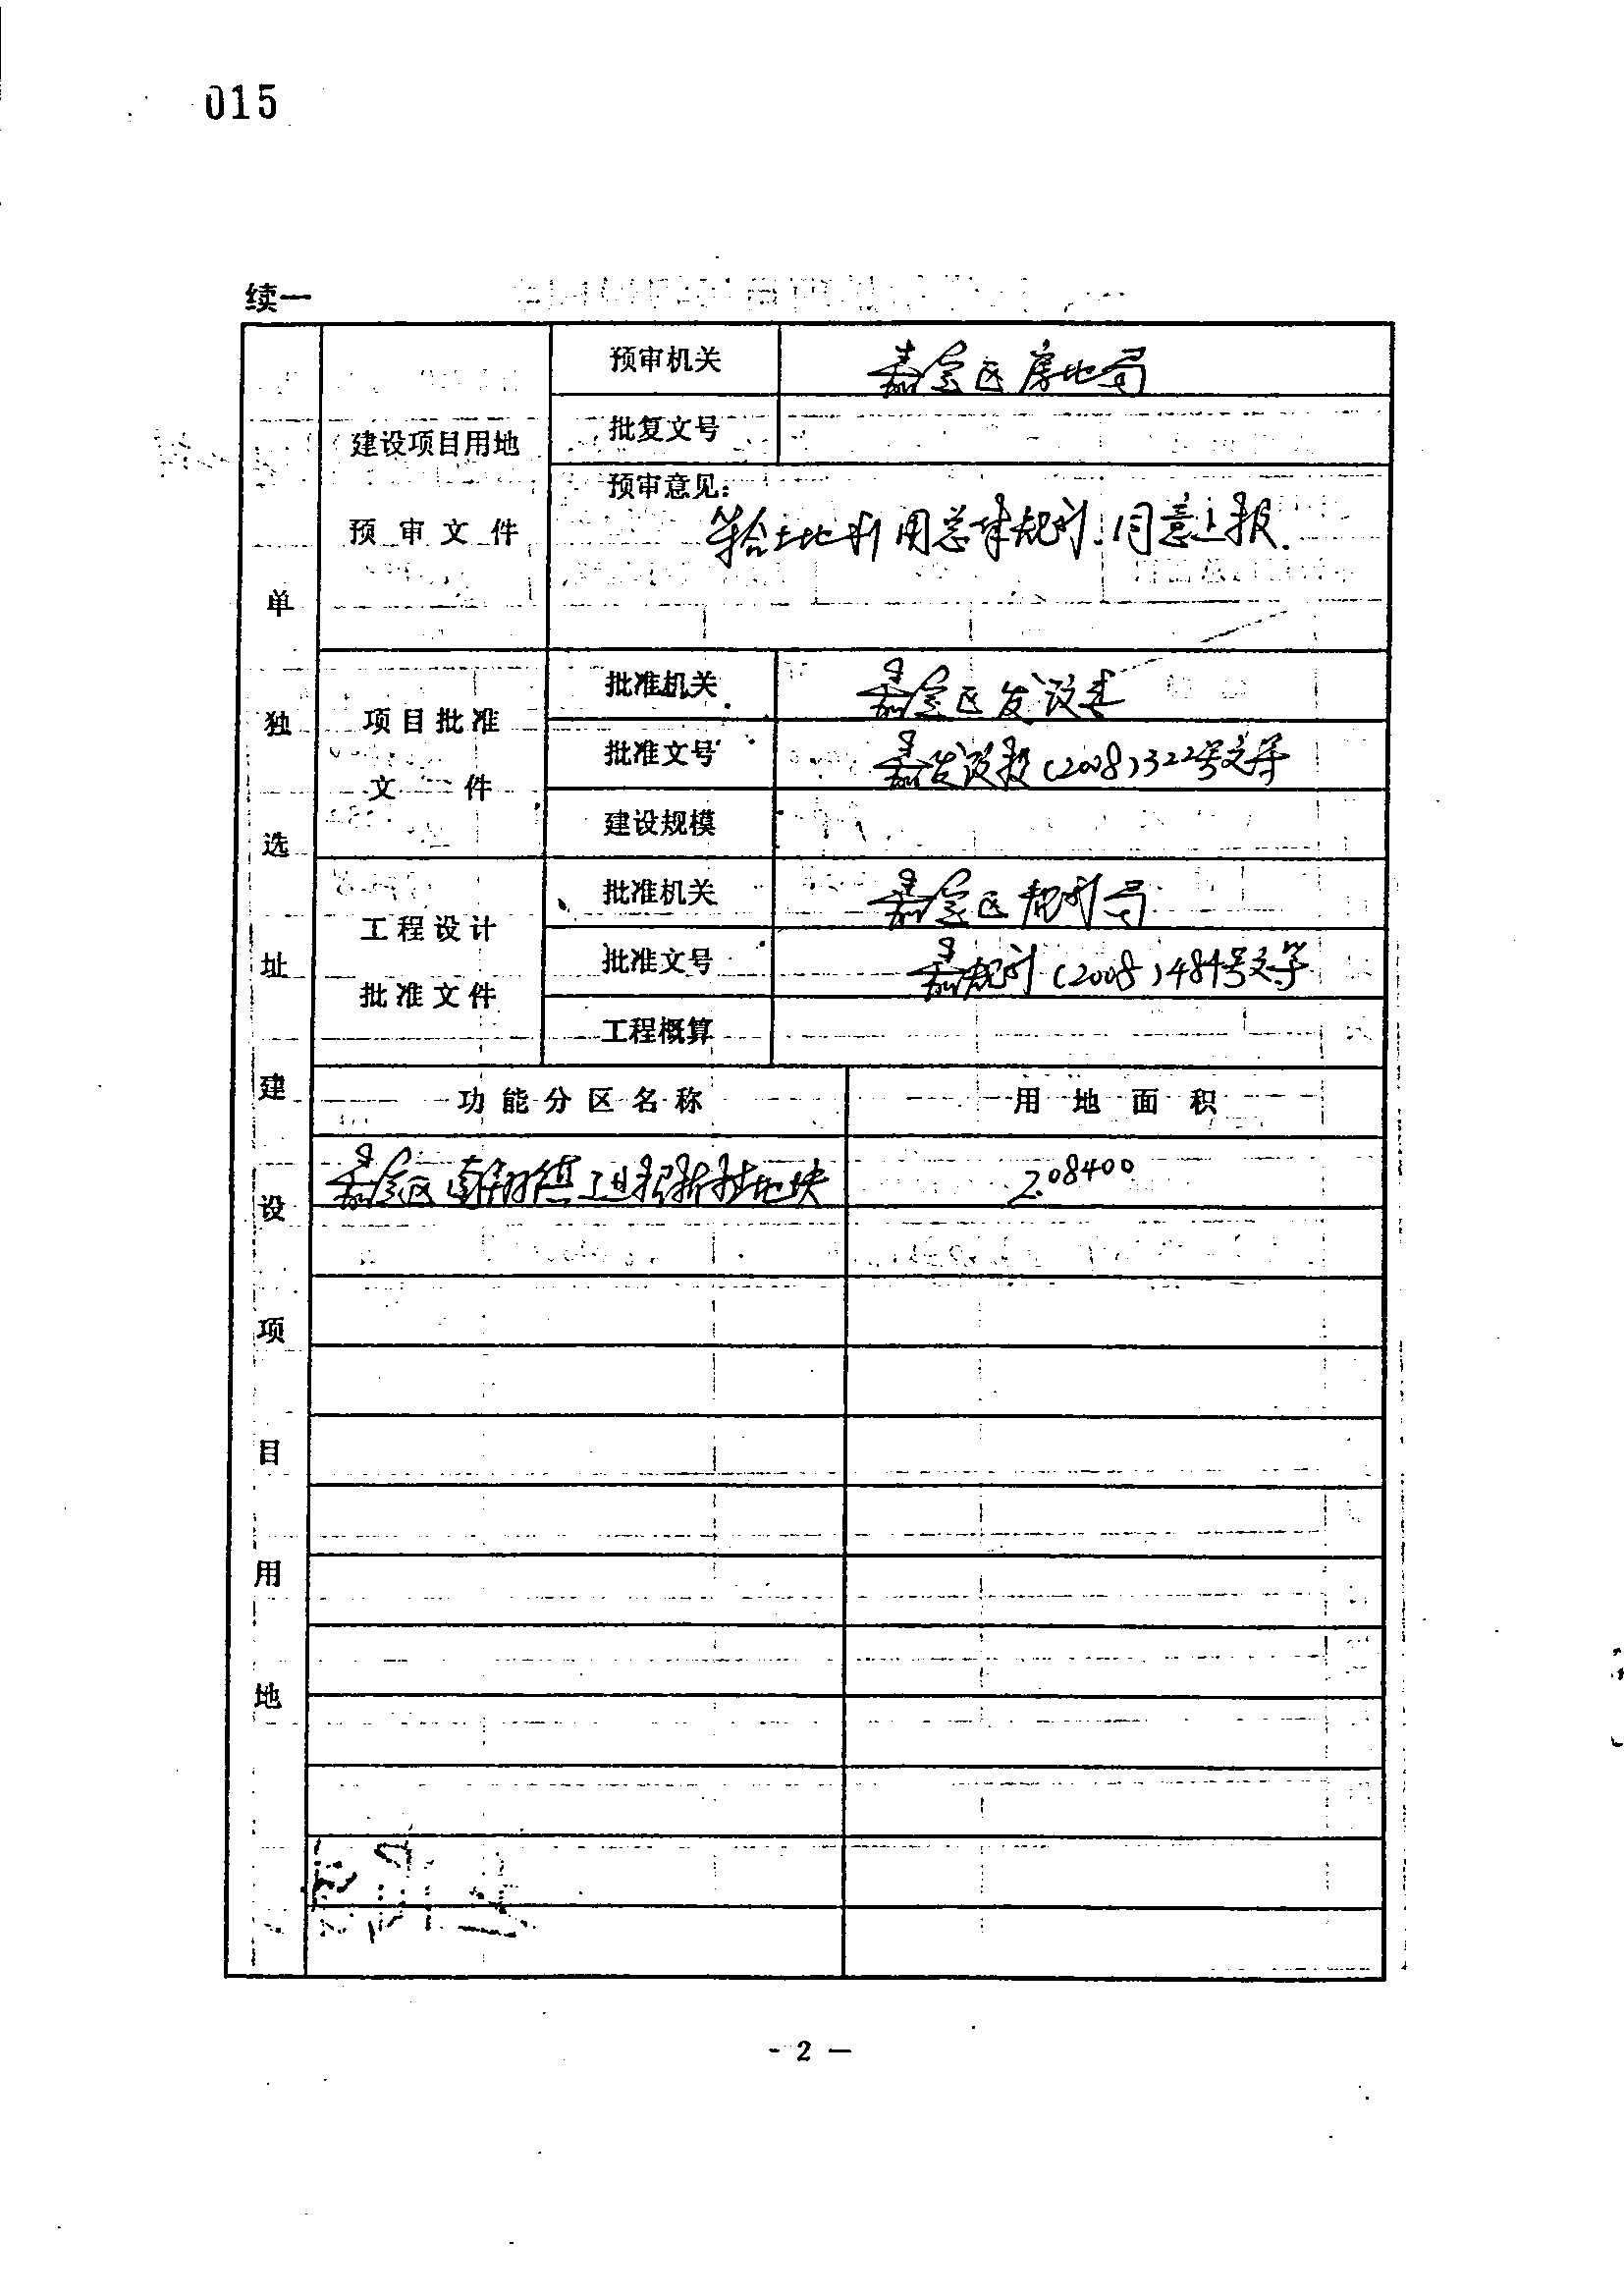 015
续一
单独选址建设项目用地
建设项目用地
预审文件
预审机关
嘉定区房地局
批复文号
预审意见:
符合土地利用总体规划.同意上报.
项目批准
文件
批准机关
嘉定区发改委
批准文号
嘉发改投(2008)322号文等
建设规模
工程设计
批准文件
批准机关
嘉定区规划局
批准文号
嘉规划(2008)484号文等
工程概算
功能分区名称
用地面积
嘉定区南翔镇
地块
2.08400
- 2 —